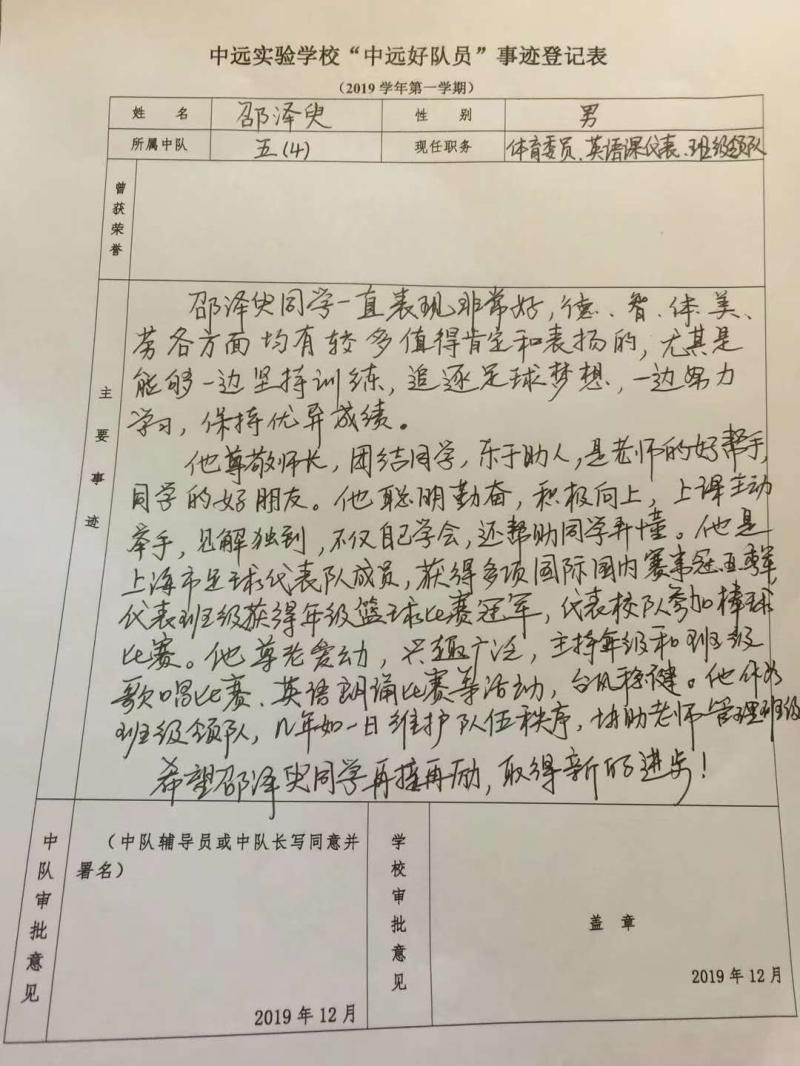 中远实验学校“中远好队员”事迹登记表
（2019 学年第一学期）
姓 名 邵泽臾 性 别 男
所属中队 五(4) 现任职务 体育委员、英语课代表、班级领队
曾获荣誉
主要事迹
邵泽臾同学一直表现非常好，德、智、体、美、
劳各方面均有较多值得肯定和表扬的，尤其是
能够一边坚持训练，追逐足球梦想，一边努力
学习，保持优异成绩。
他尊敬师长，团结同学，乐于助人，是老师的好帮手，
同学的好朋友。他聪明勤奋，积极向上，上课主动
举手，见解独到，不仅自己学会，还帮助同学弄懂。他是
上海市足球代表队成员，获得多项国际国内赛事冠亚季军，
代表班级获得年级篮球比赛冠军，代表校队参加棒球
比赛。他尊老爱幼，兴趣广泛，主持年级和班级
歌唱比赛、英语朗诵比赛等活动，台风稳健。他作为
班级领队，几年如一日维护队伍秩序，协助老师管理班级
希望邵泽臾同学再接再励，取得新的进步！
中队审批意见
（中队辅导员或中队长写同意并
署名）
2019 年 12 月
学校审批意见
盖 章
2019 年 12 月